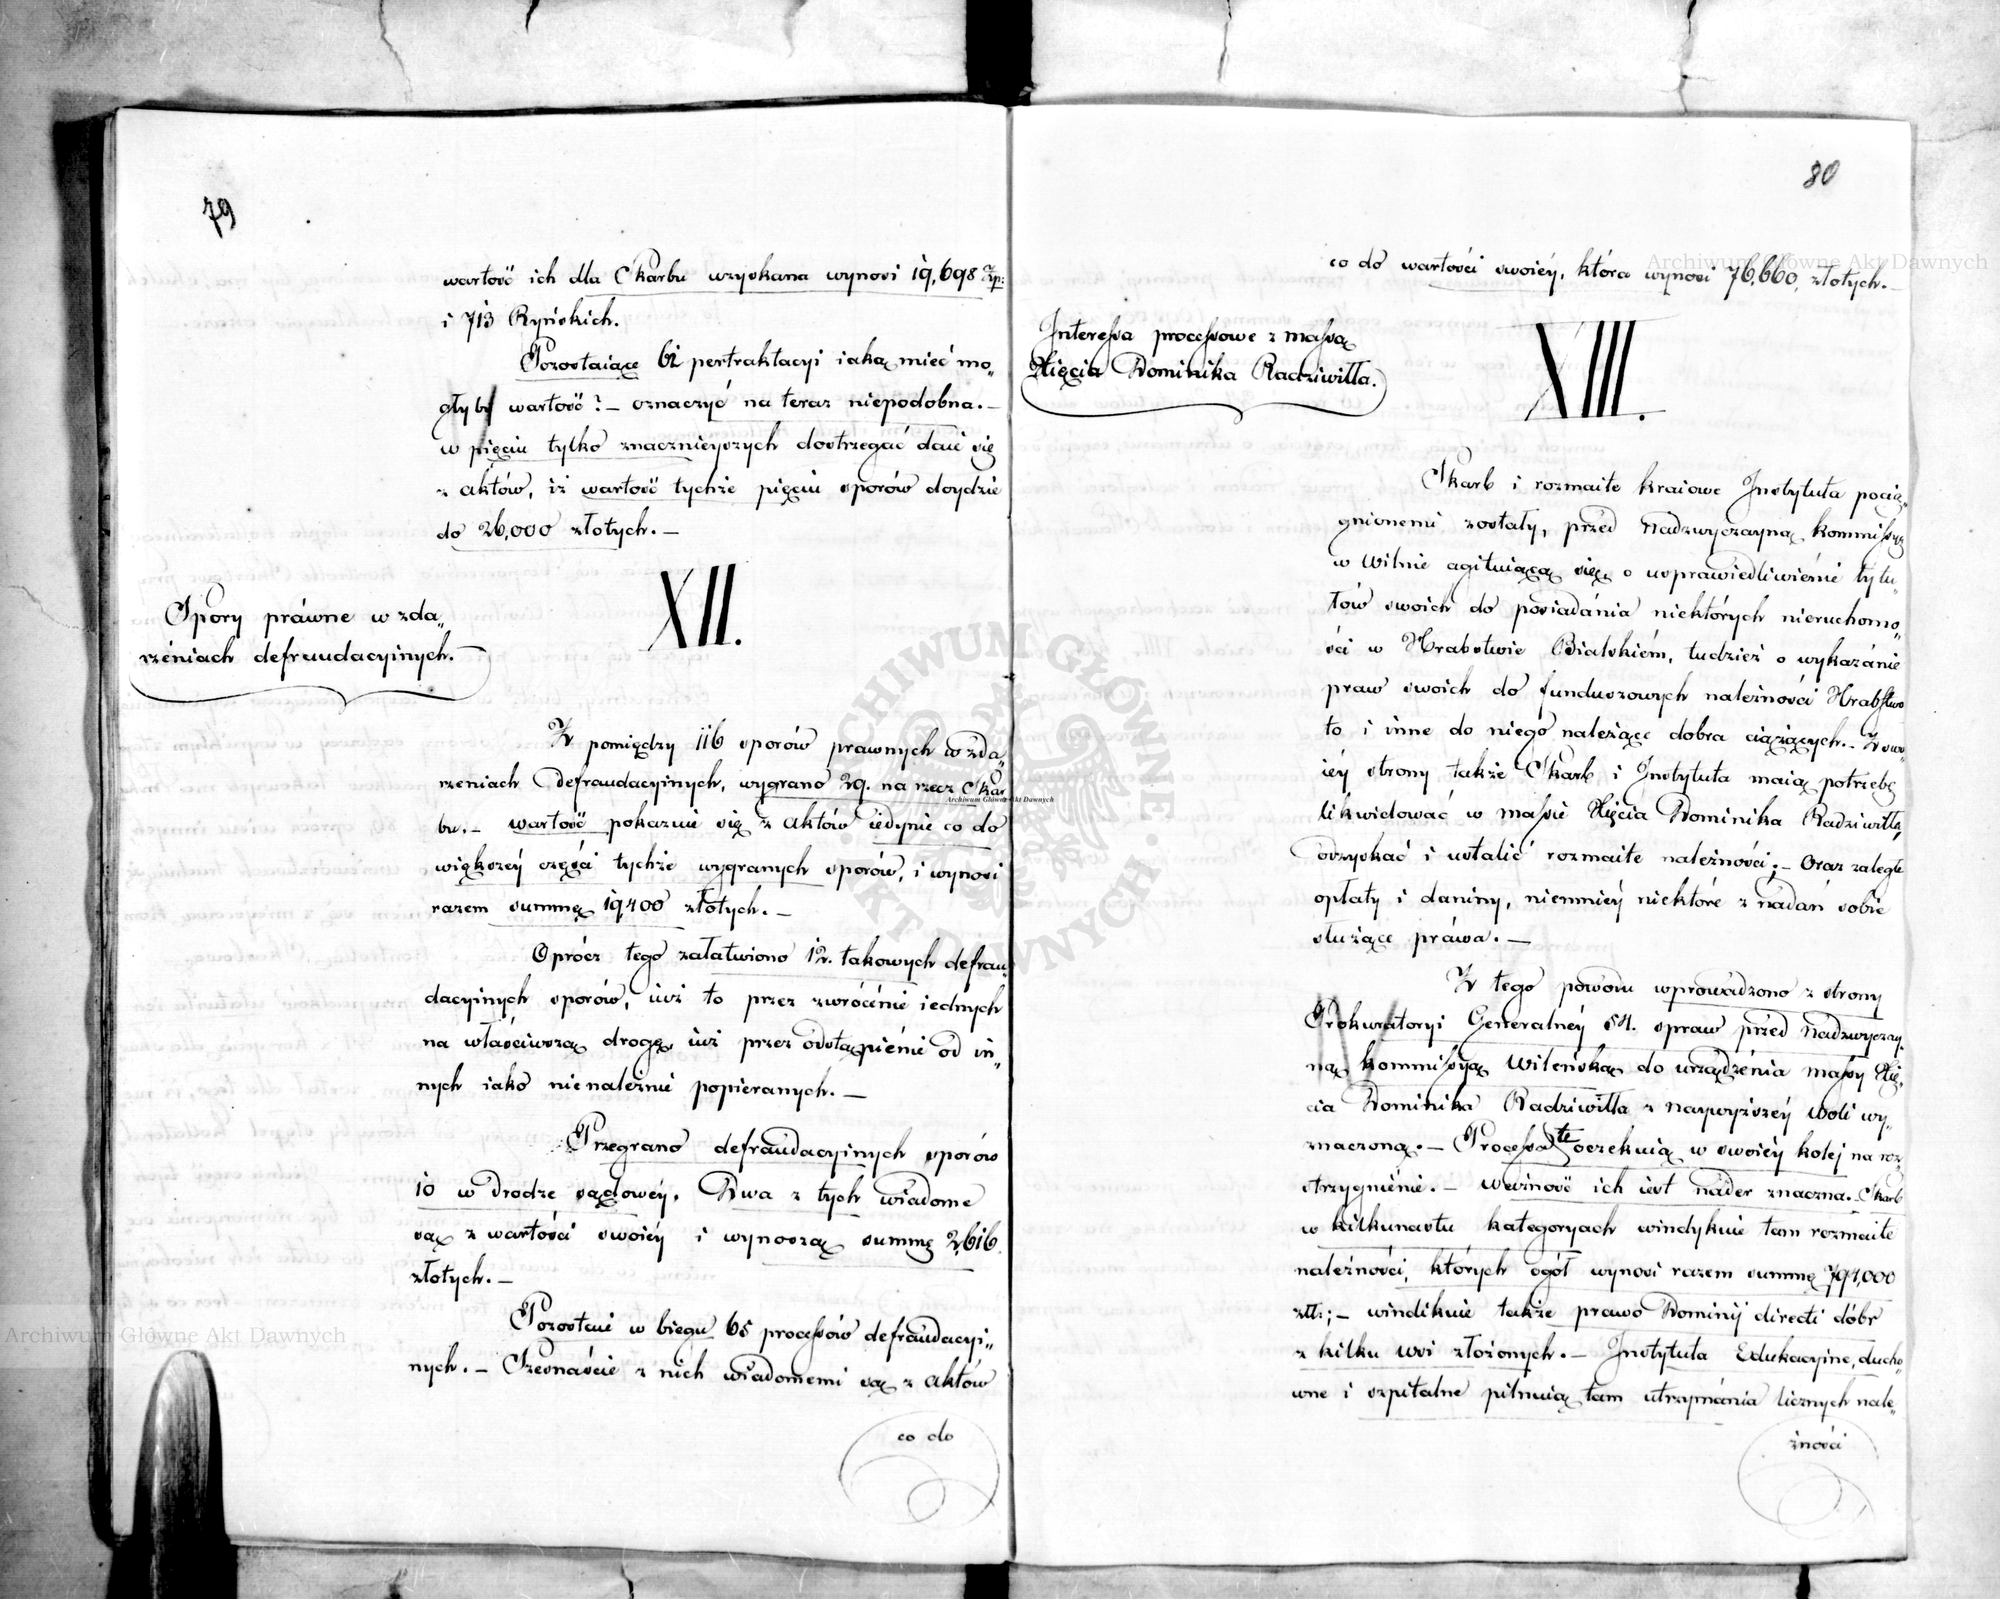 79
wartość ich dla Skarbu uzyskana wynosi 19,698 Zp:
i 713 Ryńskich.
Pozostaiące 62 pertraktacyi iaką mieć mo„
głyby wartość? — oznaczyć na teraz niepodobna. —
w pięciu tylko znacznieyszych dostrzegać daie się
z aktów, iż wartość tychże pięciu sporów doydzie
do 26,000 złotych. —
XII.
Spory práwne w zda„
rzeniach defraudacyinych. —
Z pomiędzy 116 sporów prawnych w zda„
rzeniach Defraudacyinych, wygrano 29. na rzecz Skar
bu. — wartość pokazuie się z aktów iedynie co do
większéy części tychże wygranych sporów, i wynosi
razem summę 19400 złotych. —
Oprócz tego załatwiono 12. takowych defrau„
dacyinych sporów, iuż to przez zwrócénie iednych
na właściwszą drogę, iuż przez odstąpiénie od in„
nych iako nienależnie popieranych. —
Przegrano defraudacyinych sporów
10 w drodze sądowéy. Dwa z tych wiadome
są z wartości swoiéy i wynoszą summę 2,616.
złotych. —
Pozostaie w biegu 65 processów defraudacyi„
nych. — Szesnaście z nich wiadomemi są z aktów
co do
80
co do wartości swoiéy, która wynosi 76,660, złotych. —
Interessa processowe z massą
Xięcia Dominika Radziwiłła.
XIII.
Skarb i rozmaite kraiowe Instytuta pocią„
gnionemi zostały, przed Nadzwyczayną Kommissyą
w Wilnie agituiącą się, o usprawiedliwiénie tytu„
łów swoich do posiadánia niektórych nieruchomo„
ści w Hrabstwie Bialskiém, tudzież o wykazánie
praw swoich do funduszowych należności Hrabstwo
to i inne do niego należące dobra ciążących. — Z swo„
iéy strony także Skarb i Instytuta maią potrzebę
likwidować w massie Xięcia Dominika Radziwiłła,
odzyskać i ustalić rozmaite należności; — oraz zaległe
opłaty i daniny, niemniéy niektóré z nadań sobie
służące práwa. —
Z tego powodu wprowadzono z strony
Prokuratoryi Generalnéy 54. spraw przed Nadzwyczay„
ną Kommissyą Wileńską do urządzénia massy Xię„
cia Dominika Radziwiłła z Naywyższéy Woli wy„
znaczoną. — Processa te oczekuią w swoiéy kolej na roz„
strzygniénie. — Ważność ich iest náder znaczna. — Skarb
w kilkunastu kategoryach windykuie tam rozmaite
należności, których ogół wynosi razem summę 794,000
złł; — windikuie także prawo Dominij directi dóbr
z kilku wsi złożonych. — Instytuta Edukacyine, ducho„
wne i szpitalne pilnuią tam utrzymánia licznych nale„
żności
Archiwum Główne Akt Dawnych
Archiwum Główne Akt Dawnych
Archiwum Główne Akt Dawnych
ARCHIWUM GŁÓWNE AKT DAWNYCH